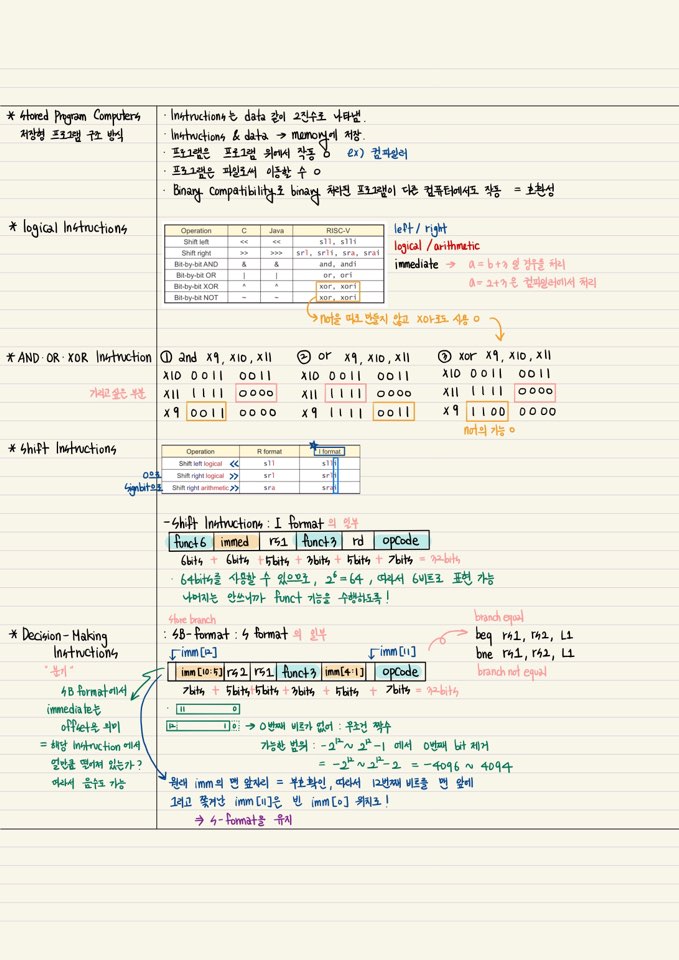 * Stored Program Computers
저장형 프로그램 구조 방식
· Instructions는 data 같이 2진수로 나타냄.
· Instructions & data → memory에 저장.
· 프로그램은 프로그램 위에서 작동 O ex) 컴파일러
· 프로그램은 파일로써 이동할 수 O
· Binary Compatibility로 binary 처리된 프로그램이 다른 컴퓨터에서도 작동 = 호환성
* logical Instructions
Operation C Java RISC-V
Shift left << << sll, slli
Shift right >> >>> srl, srli, sra, srai
Bit-by-bit AND & & and, andi
Bit-by-bit OR | | or, ori
Bit-by-bit XOR ^ ^ xor, xori
Bit-by-bit NOT ~ ~ xor, xori
left / right
logical / arithmetic
immediate → a = b+3 일 경우를 처리
a = 2+3 은 컴파일러에서 처리
→ not을 따로 만들지 않고 xor로도 사용 O
* AND · OR · XOR Instruction
가리고 싶은 부분
① and x9, x10, x11
x10 0011 0011
x11 1111 0000
x9 0011 0000
② or x9, x10, x11
x10 0011 0011
x11 1111 0000
x9 1111 0011
③ xor x9, x10, x11
x10 0011 0011
x11 1111 0000
x9 1100 0000
not의 기능 O
* Shift Instructions
0으로
sign bit으로
Operation R format I format
Shift left logical << sll slli
Shift right logical >> srl srli
Shift right arithmetic >> sra srai
- Shift Instructions : I format 의 일부
funct6 immed rs1 funct3 rd opcode
6bits + 6bits + 5bits + 3bits + 5bits + 7bits = 32bits
· 64bits를 사용할 수 있으므로, 2^6 = 64, 따라서 6비트로 표현 가능
나머지는 안쓰니까 funct 기능을 수행하도록!
* Decision-Making
Instructions
"분기"
SB format에서
immediate는
offset을 의미
= 해당 Instruction에서
얼만큼 떨어져 있는가?
따라서 음수도 가능
store branch
: SB-format : S format 의 일부
imm[12] imm[11]
imm[10:5] rs2 rs1 funct3 imm[4:1] opcode
7bits + 5bits + 5bits + 3bits + 5bits + 7bits = 32bits
branch equal
beq rs1, rs2, L1
bne rs1, rs2, L1
branch not equal
· 11 0
12 1 0 → 0번째 비트가 없어 : 무조건 짝수
가능한 범위 : -2^12 ~ 2^12-1 에서 0번째 bit 제거
= -2^12 ~ 2^12-2 = -4096 ~ 4094
원래 imm의 맨 앞자리 = 부호확인, 따라서 12번째 비트를 맨 앞에
그리고 쫓겨난 imm[11]은 빈 imm[0] 위치로!
→ S-format을 유지